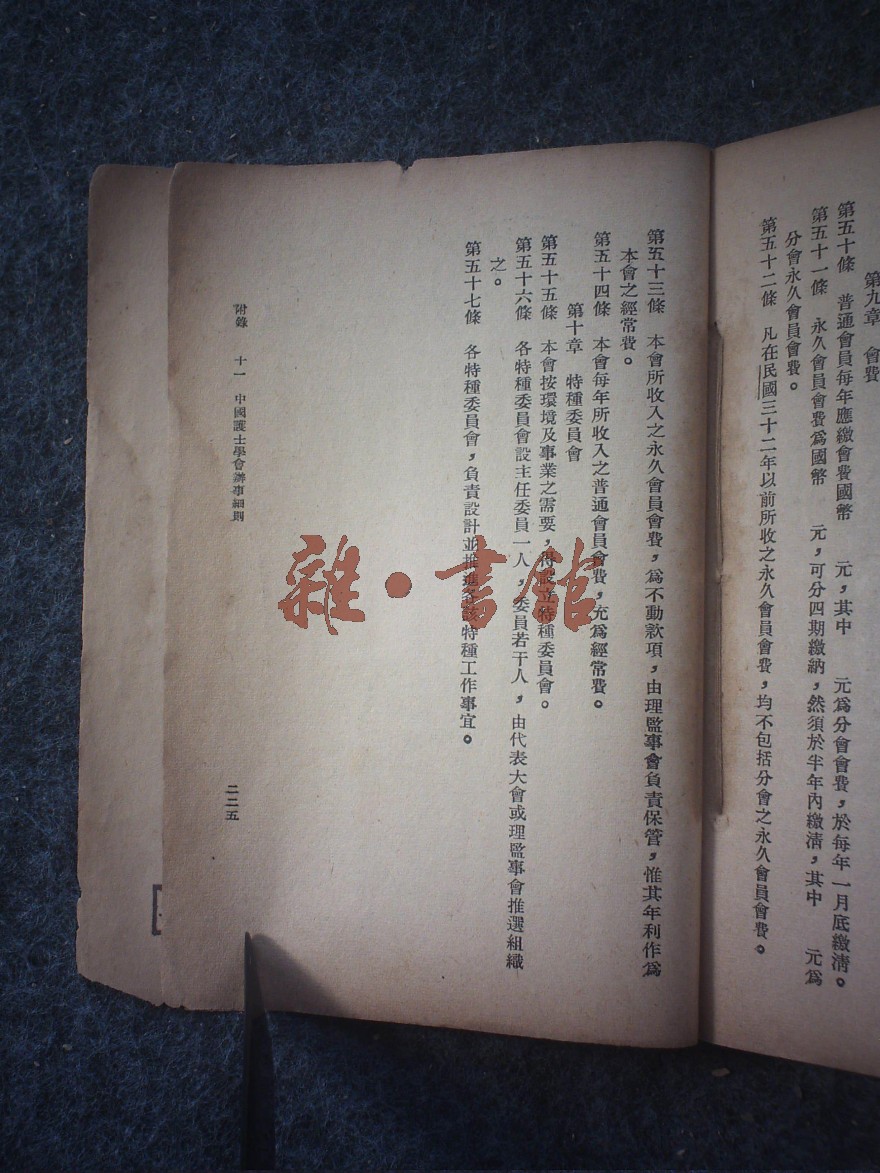 第九章　會費
第五十條　普通會員每年應繳會費國幣　　元，其中　　元爲分會會費，於每年一月底繳清。
第五十一條　永久會員會費爲國幣　　元，可分四期繳納，然須於半年內繳清，其中　　元爲
分會永久會員會費。
第五十二條　凡在民國三十二年以前所收之永久會員會費，均不包括分會之永久會員會費。
第五十三條　本會所收入之永久會員會費，爲不動款項，由理監事會負責保管，惟其年利作爲
本會之經常費。
第五十四條　本會每年所收入之普通會員會費，充爲經常費。
第十章　特種委員會
第五十五條　本會按環境及事業之需要，得設立特種委員會。
第五十六條　各特種委員會設主任委員一人，委員若干人，由代表大會或理監事會推選組織
之。
第五十七條　各特種委員會，負責設計並推進各該特種工作事宜。
附錄　十一　中國護士學會辦事細則
二二五
雜·書館